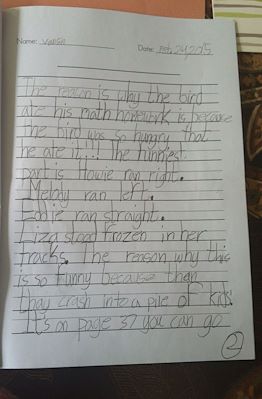 Name: Vansh Date: Feb, 24, 2015
The reason is why the bird
ate his math homework is because
the bird was so hungry that
he ate it!!! The funniest
part is Howie ran right.
Melody ran left.
Eddie ran straight.
Liza stood frozen in her
tracks. The reason why this
is so funny because then
thay crash into a pile of kids.
It's on page 37 you can go
2